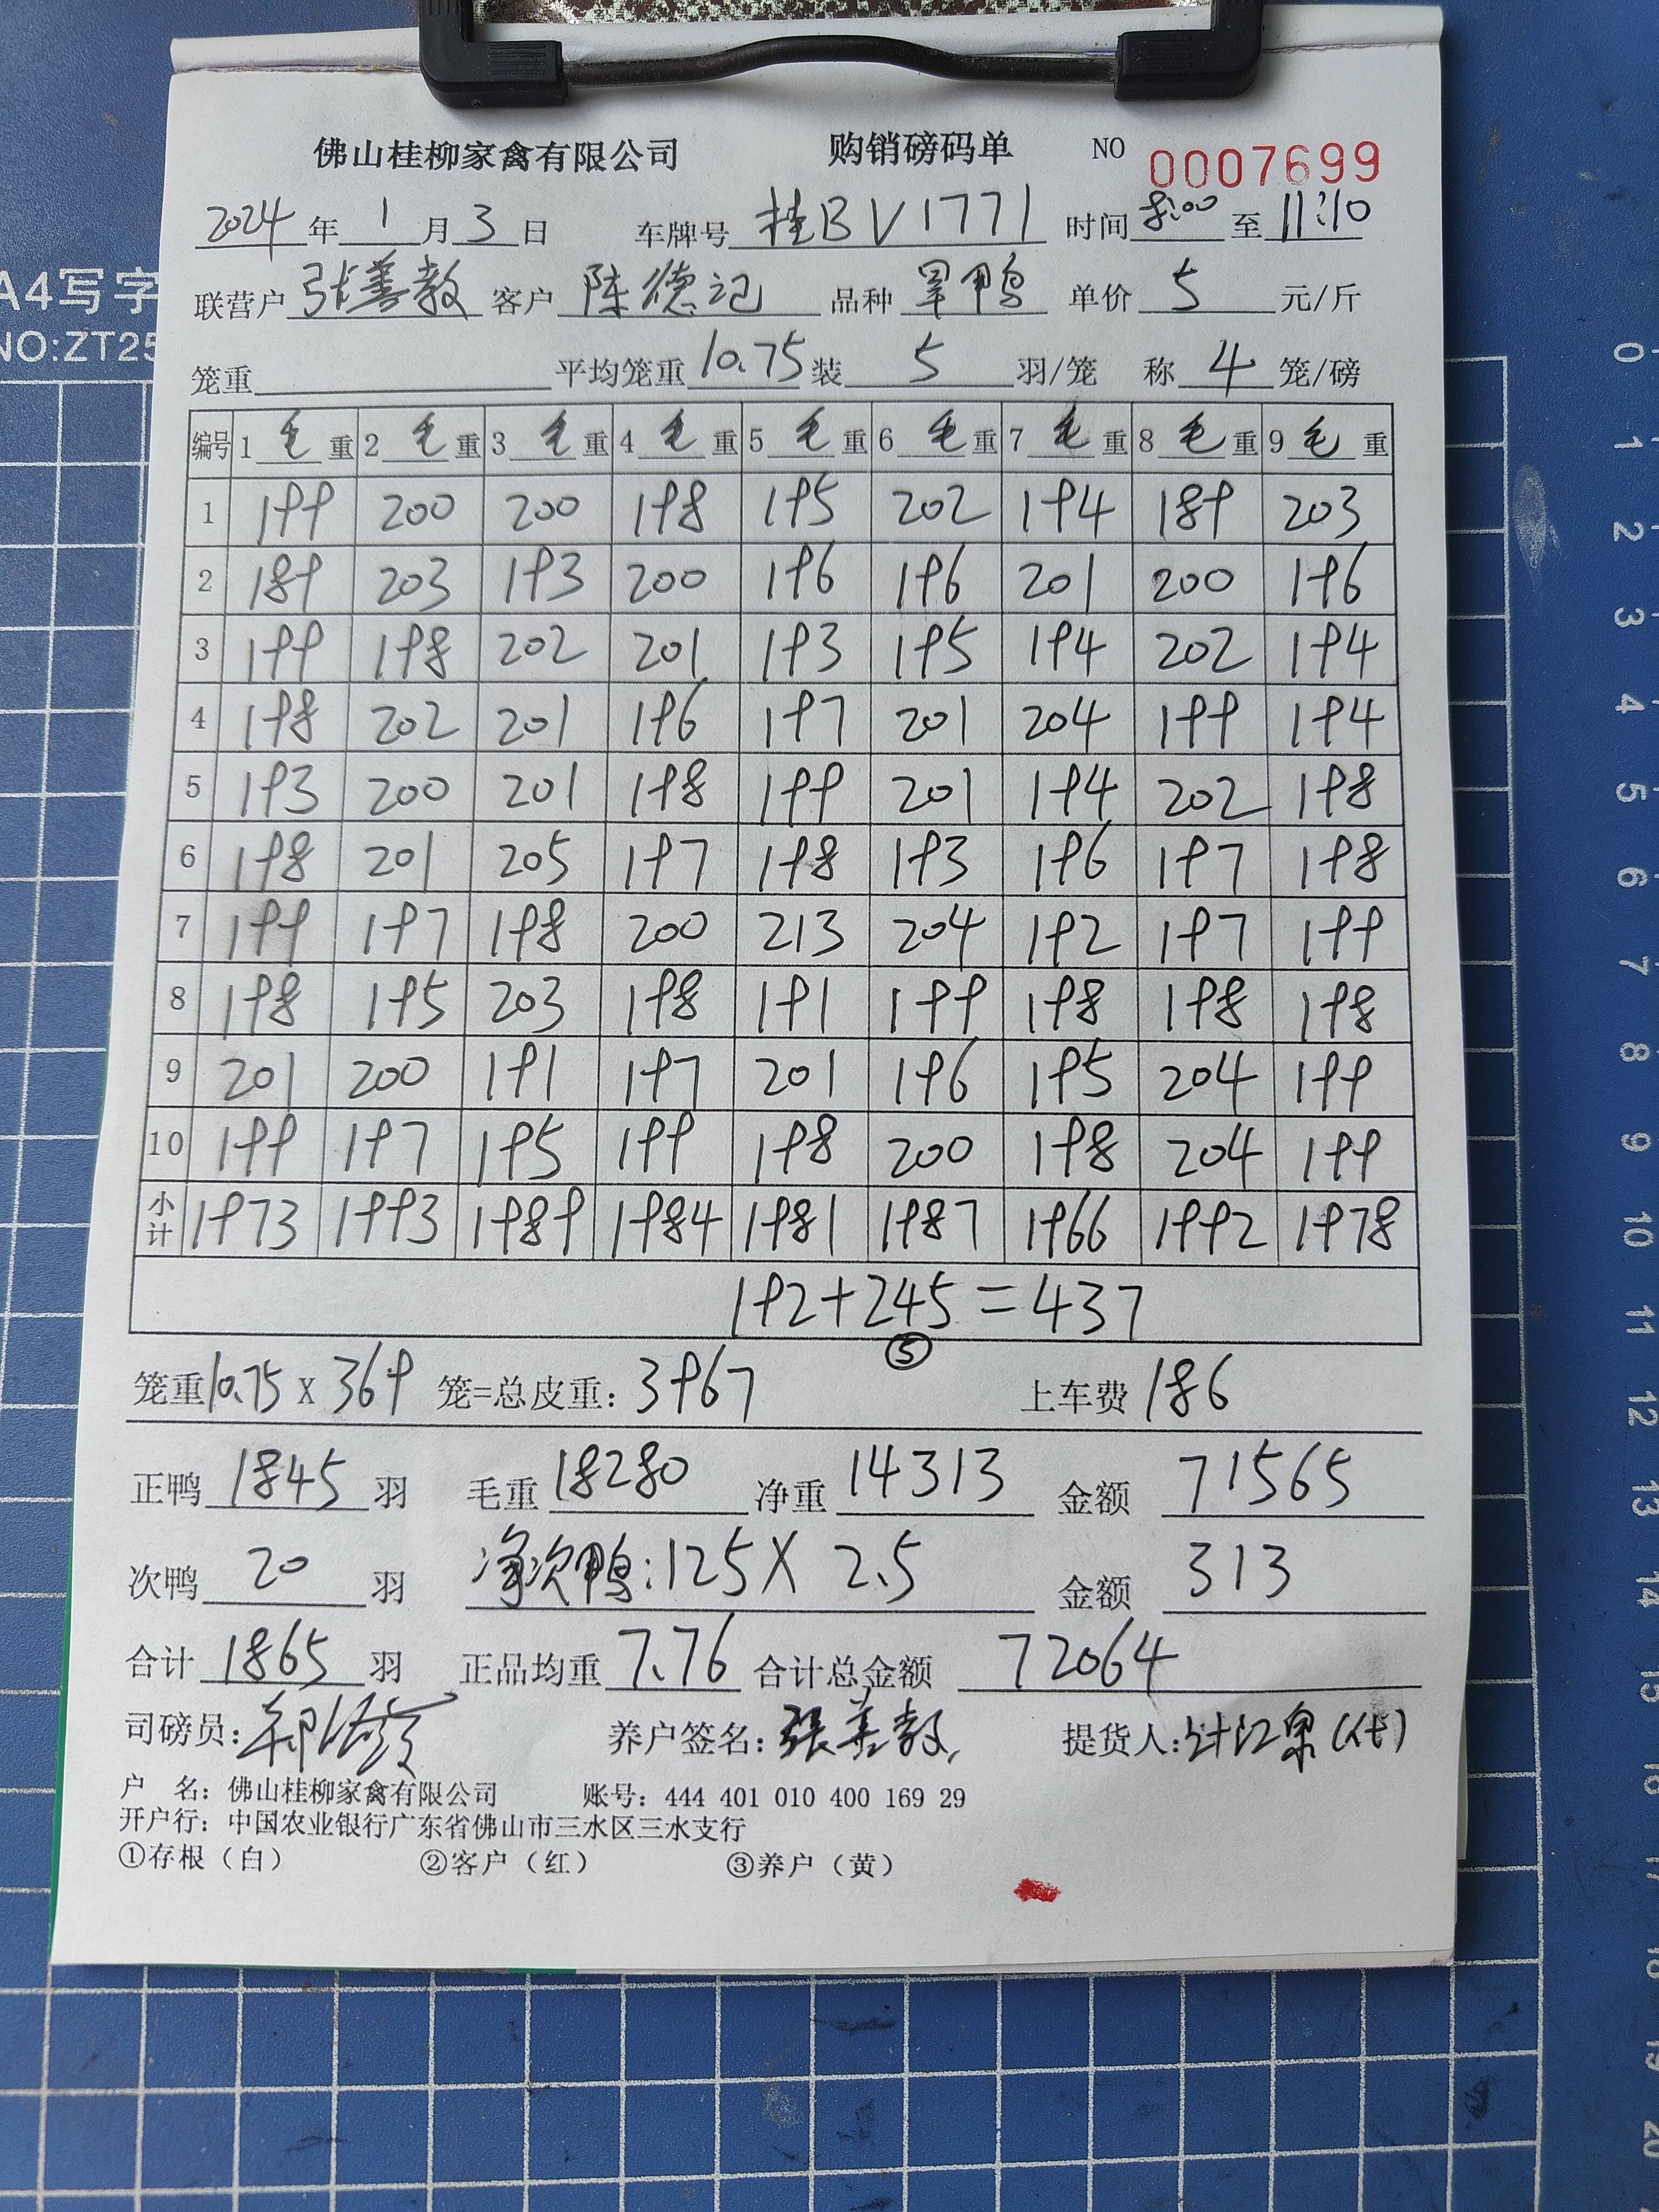 佛山桂柳家禽有限公司 购销磅码单 NO 0007699
2024年1月3日 车牌号 桂BV1771 时间8:00至11:10
联营户 张善教 客户 陈德记 品种 旱鸭 单价 5 元/斤
笼重 平均笼重10.75装 5 羽/笼 称 4 笼/磅
编号 1毛重 2毛重 3毛重 4毛重 5毛重 6毛重 7毛重 8毛重 9毛重
1 199 200 200 198 195 202 194 189 203
2 189 203 193 200 196 196 201 200 196
3 199 198 202 201 193 195 194 202 194
4 198 202 201 196 197 201 204 199 194
5 193 200 201 198 199 201 194 202 198
6 198 201 205 197 198 193 196 197 198
7 199 197 198 200 213 204 192 197 199
8 198 195 203 198 191 199 198 198 198
9 201 200 191 197 201 196 195 204 199
10 199 197 195 199 198 200 198 204 199
小计 1973 1993 1989 1984 1981 1987 1966 1992 1978
192+245=437
⑤
笼重10.75 X 369 笼=总皮重:3967 上车费 186
正鸭 1845 羽 毛重 18280 净重 14313 金额 71565
次鸭 20 羽 净次鸭:125X 2.5 金额 313
合计 1865 羽 正品均重 7.76 合计总金额 72064
司磅员: 养户签名:张善教 提货人:(代)
户 名:佛山桂柳家禽有限公司 账号:444 401 010 400 169 29
开户行:中国农业银行广东省佛山市三水区三水支行
①存根(白) ②客户(红) ③养户(黄)
A4写字
NO:ZT25
0
1
2
3
4
5
6
7
8
9
10
11
12
13
14
15
16
17
18
19
20